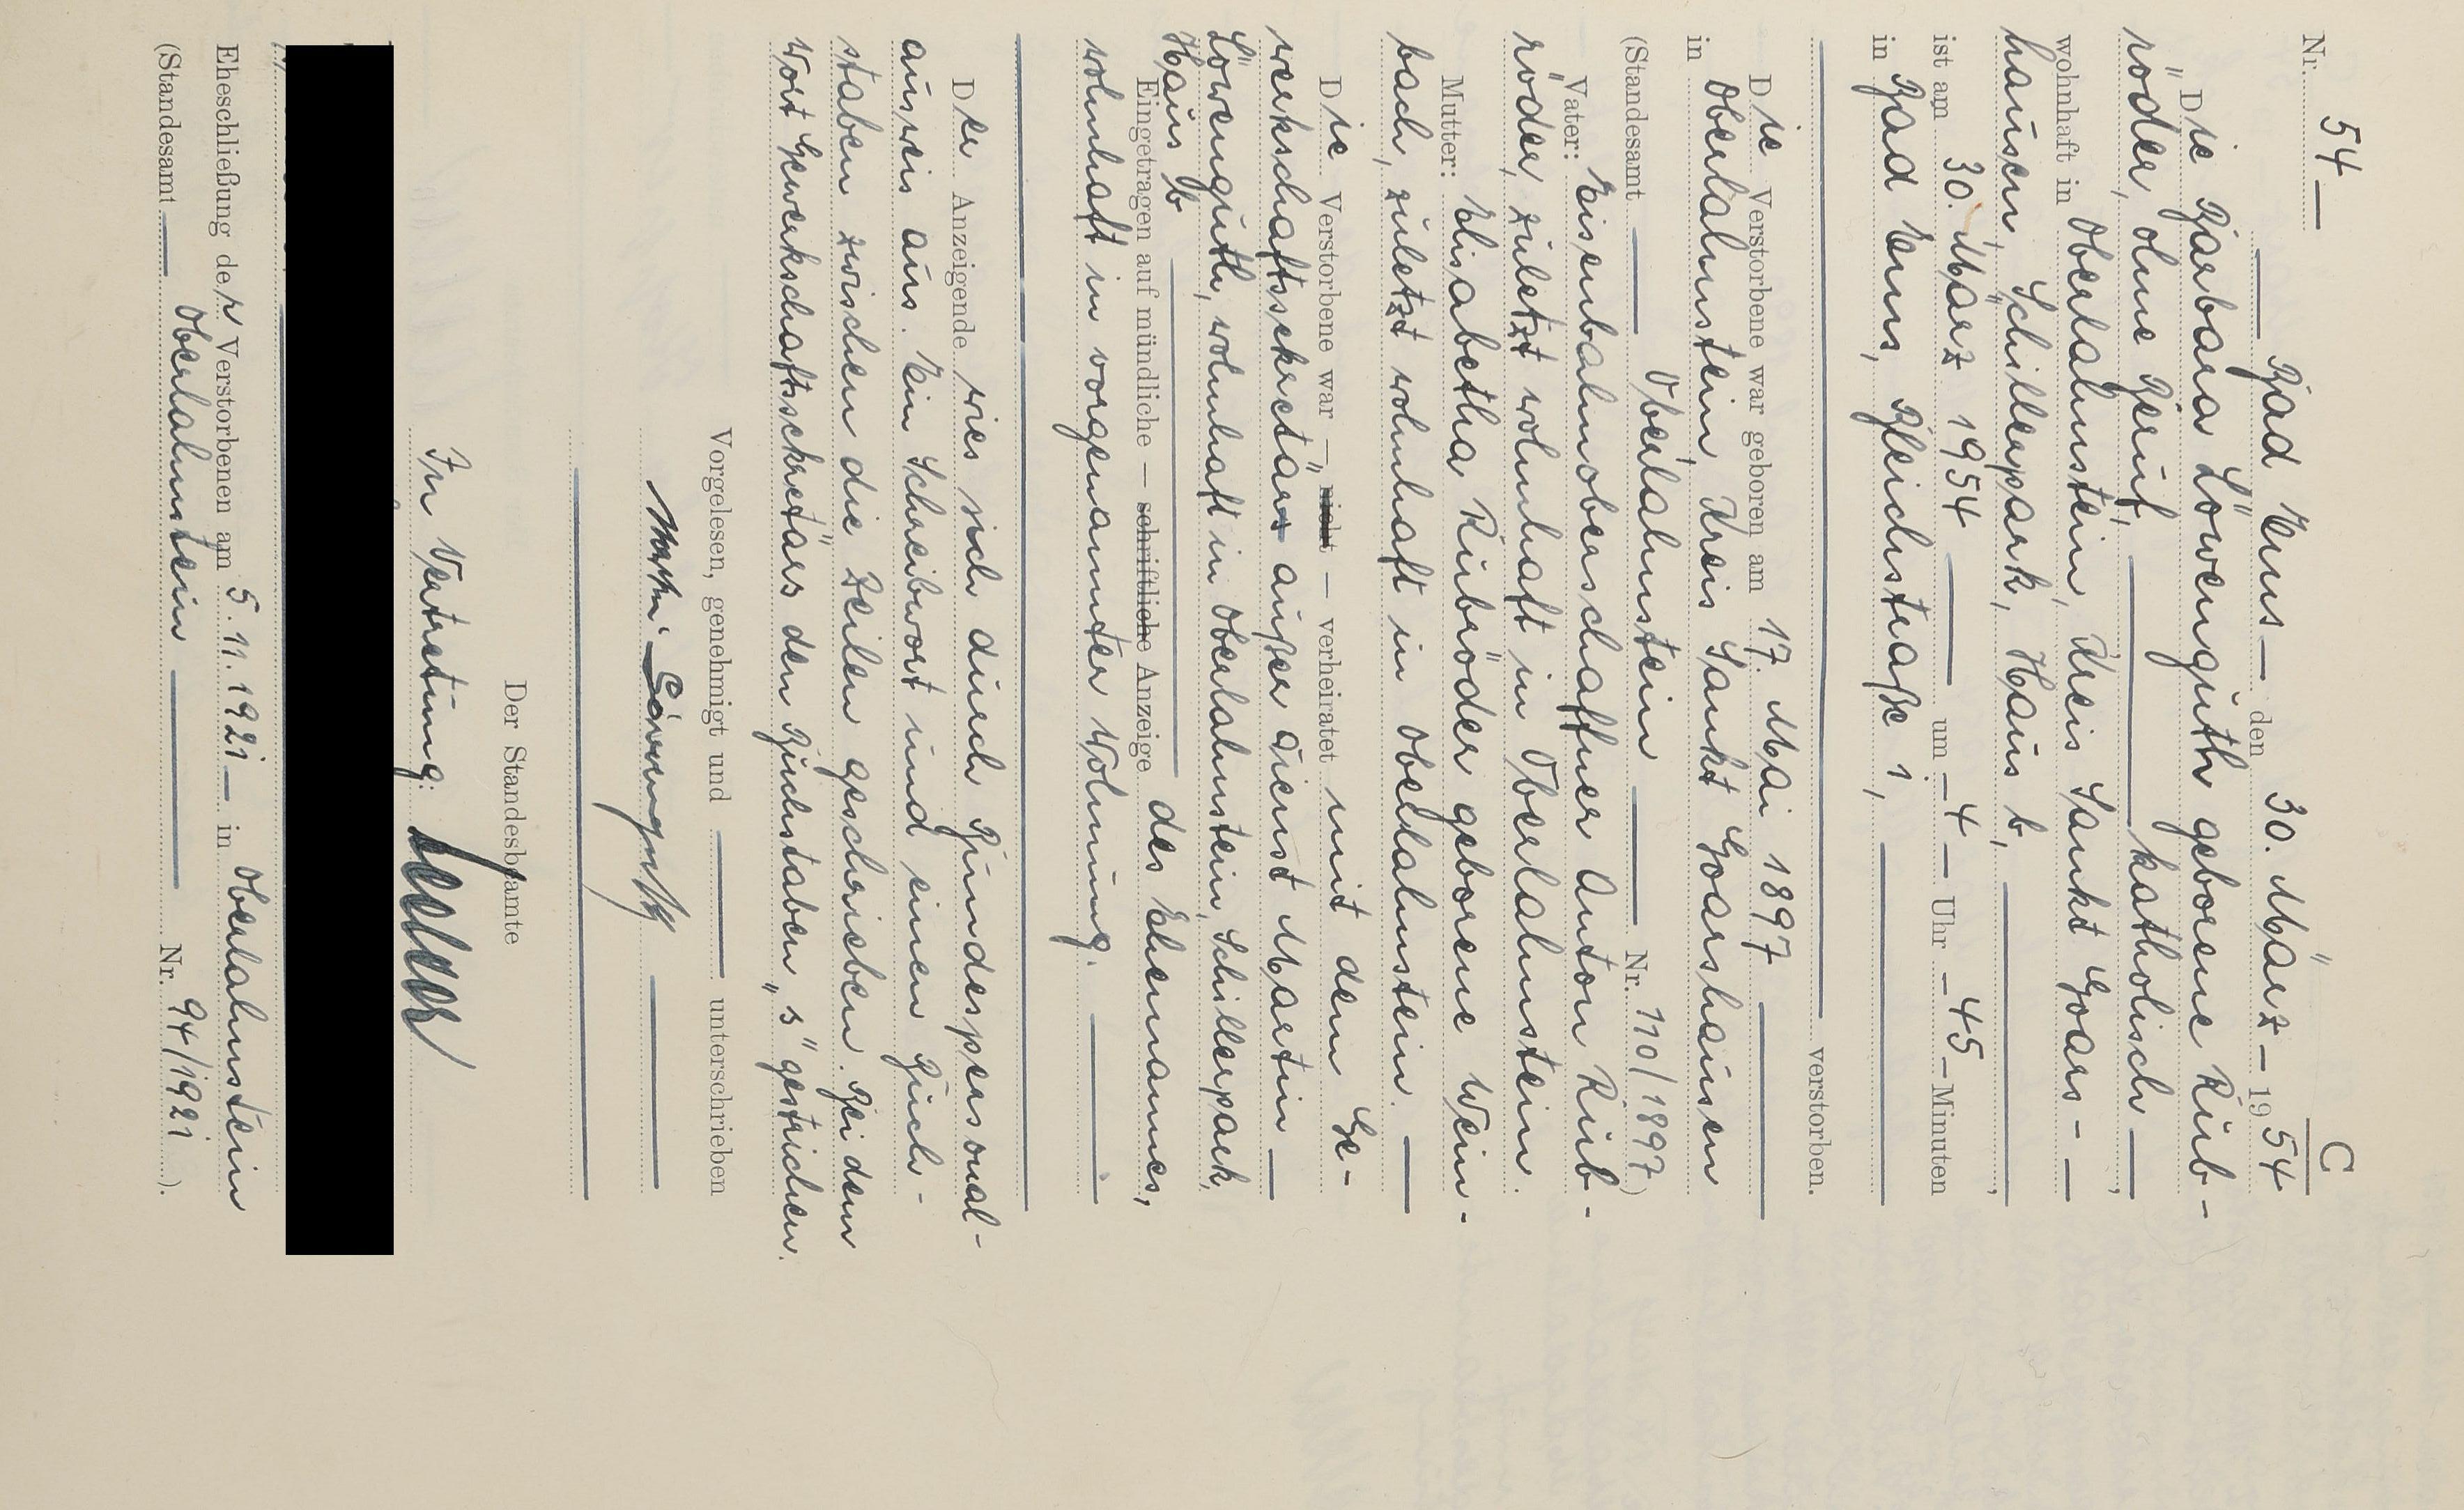 C
Nr. 54 —
— Bad Ems — den 30. März — 1954
Die Barbara Löwenguth geborene Rüb-
röder, ohne Beruf, — katholisch —,
wohnhaft in Oberlahnstein, Kreis Sankt Goars- —
hausen, Schillerpark, Haus b, —,
ist am 30. März 1954 — um — 4 — Uhr — 45 — Minuten
in Bad Ems, Bleichstraße 1, —
— verstorben.
Die Verstorbene war geboren am 17. Mai 1897 —
in Oberlahnstein, Kreis Sankt Goarshausen
(Standesamt — Oberlahnstein — Nr. 110/1897)
Vater: Eisenbahnoberschaffner Anton Rüb-
röder, zuletzt wohnhaft in Oberlahnstein.
Mutter: Elisabetha Rübröder geborene Wein-
bach, zuletzt wohnhaft in Oberlahnstein. —
Die Verstorbene war — nicht — verheiratet mit dem Ge-
werkschaftssekretärs außer Dienst Martin —
Löwenguth, wohnhaft in Oberlahnstein, Schillerpark,
Haus b —
Eingetragen auf mündliche — schriftliche Anzeige des Ehemannes,
wohnhaft in vorgenannter Wohnung. —
Der Anzeigende wies sich durch Bundespersonal-
ausweis aus. Ein Schreibwort und einen Buch-
staben zwischen die Zeilen geschrieben. Bei dem
Wort Gewerkschaftssekretärs den Buchstaben „s" gestrichen.
Vorgelesen, genehmigt und — unterschrieben
Martin Löwenguth —
Der Standesbeamte
In Vertretung:
Eheschließung der Verstorbenen am 5. 11. 1921 — in Oberlahnstein
(Standesamt — Oberlahnstein — Nr. 94/1921).